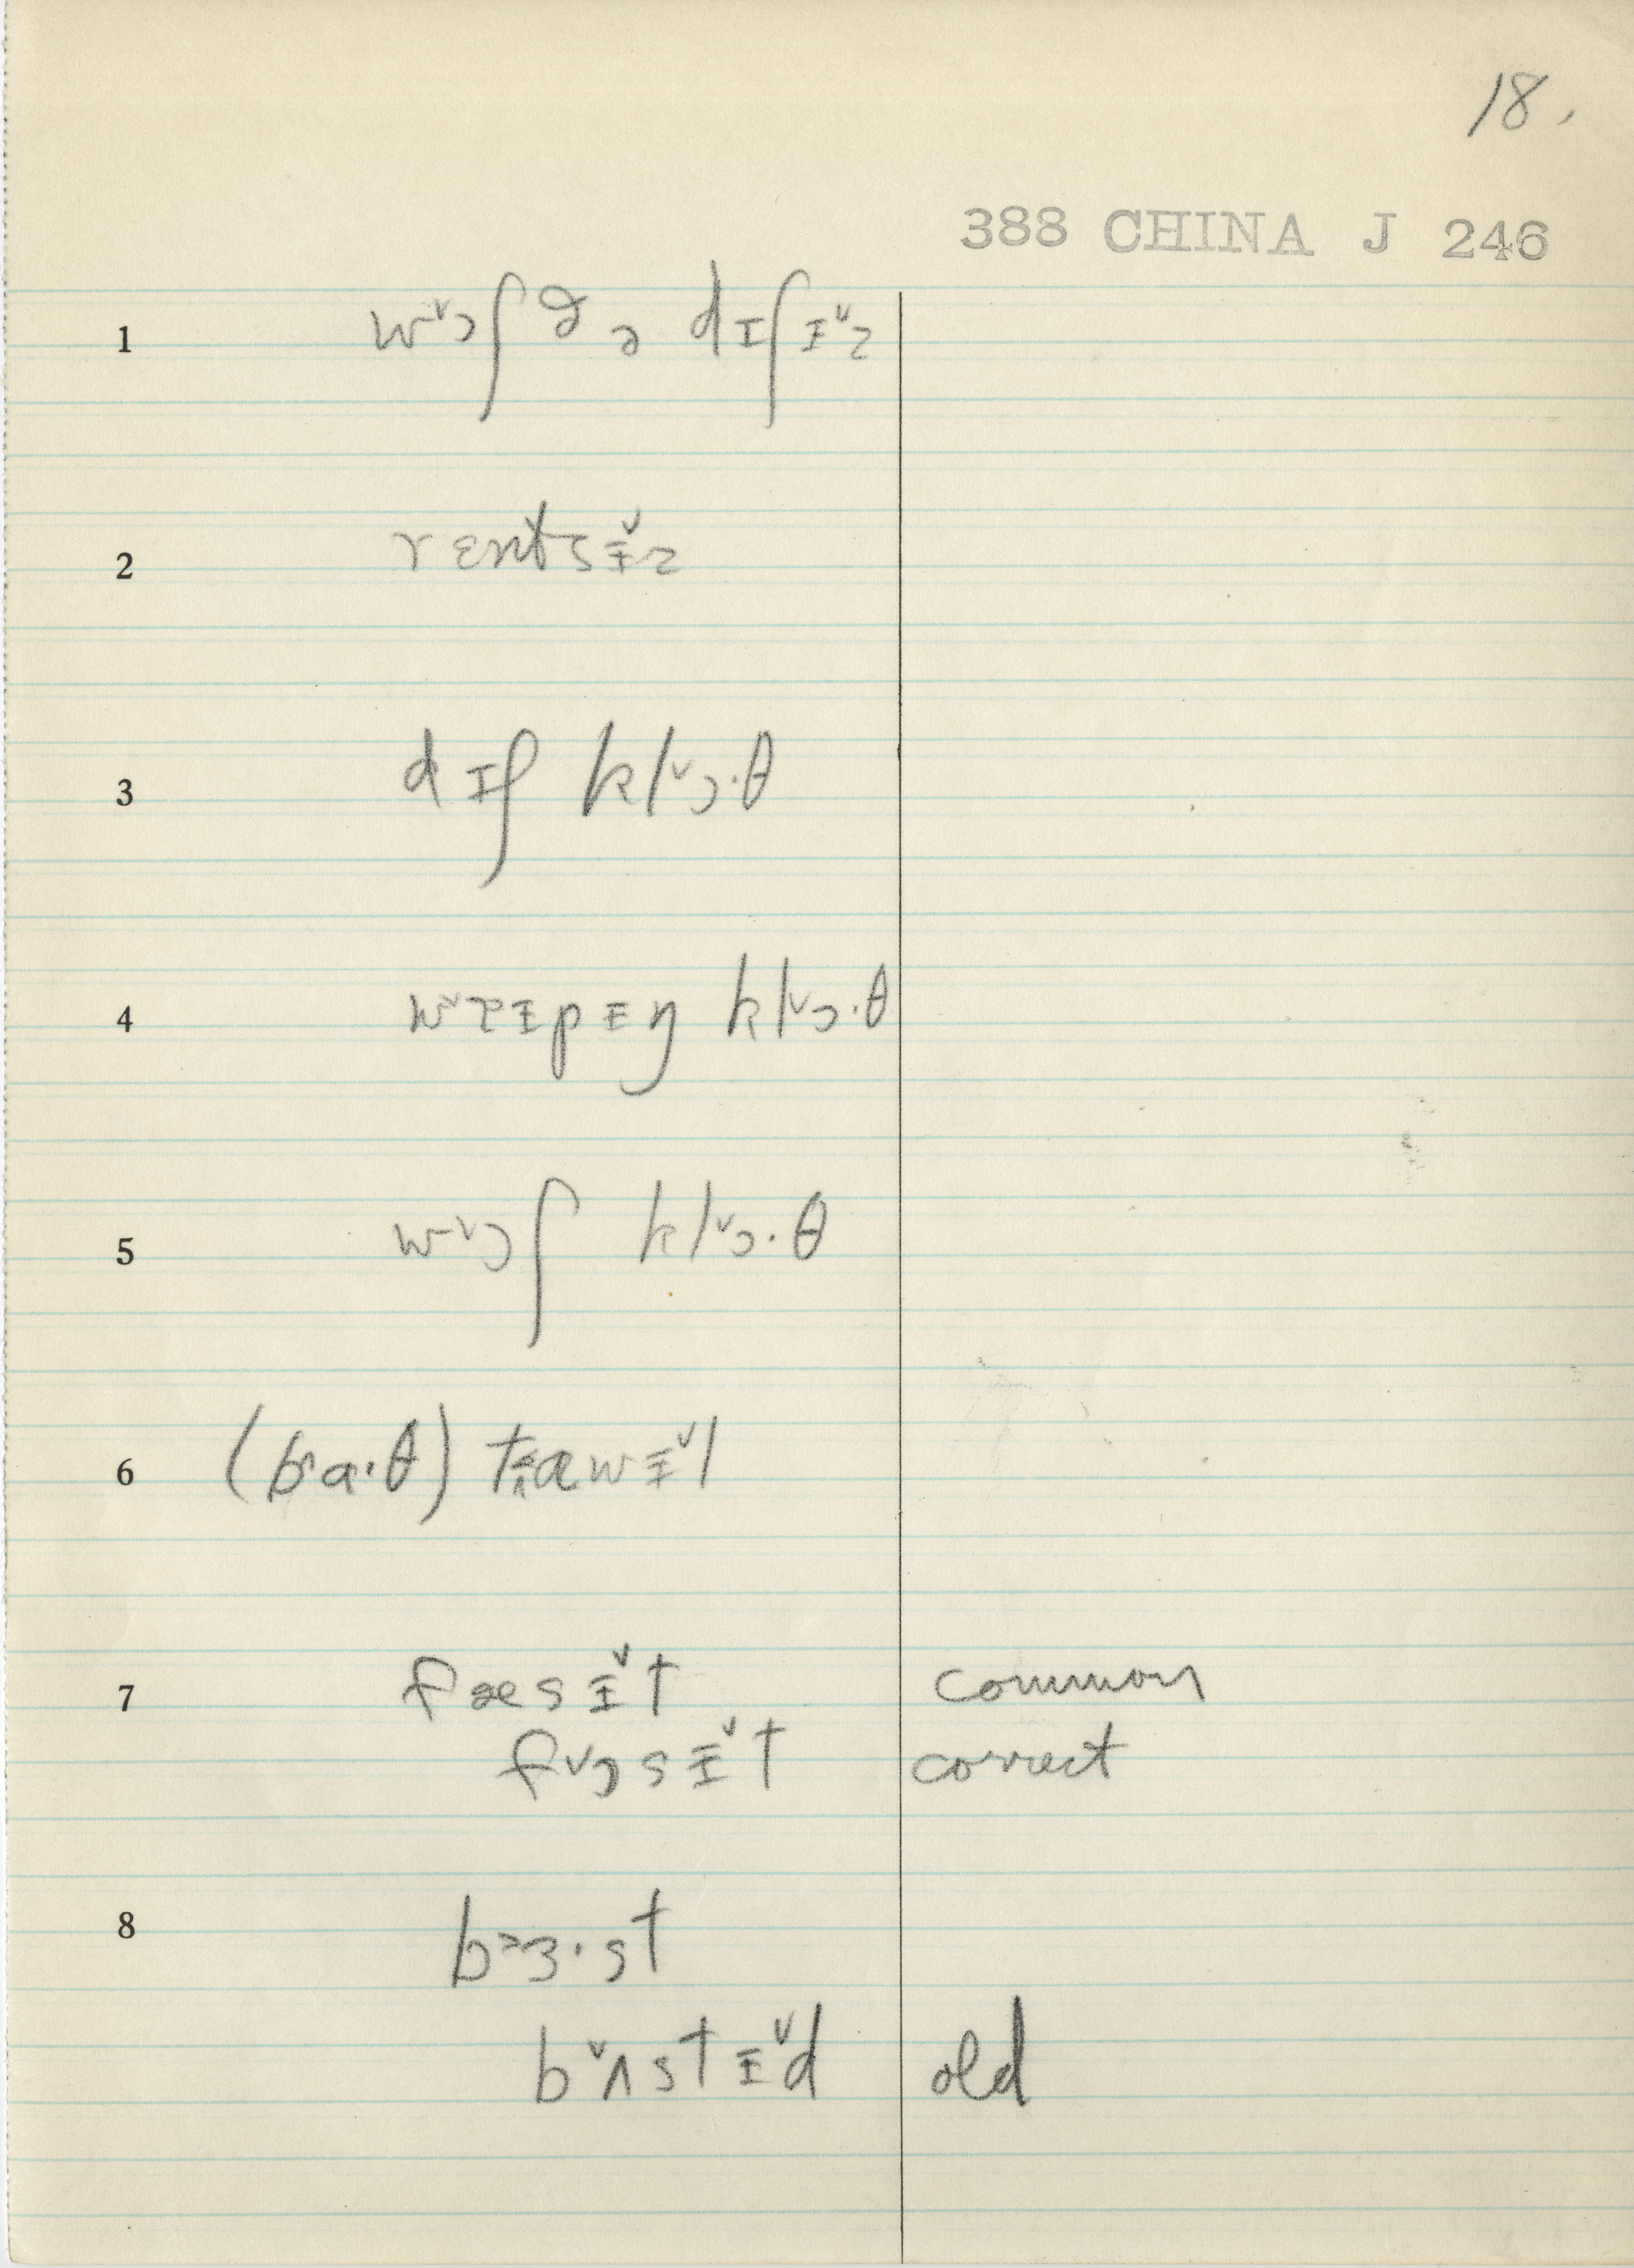 18.
388 CHINA J 246
1 wɔ˅ʃ ðə dɪʃɪ˅z
2 rɛntsɪ˅z
3 dɪʃ klɔ˅·θ
4 ɪpɪŋ klɔ˅·θ
5 wɔ˅ʃ klɔ˅·θ
6 (ba·θ) tawɪ˅l
7 fæsɪ˅t common
fɔ˅sɪ˅t correct
8 bɜ˃·st
bʌ˅stɪ˅d old